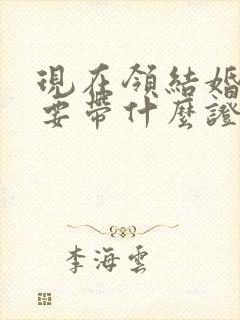 現在領結婚
要帶什麼證
李海雲